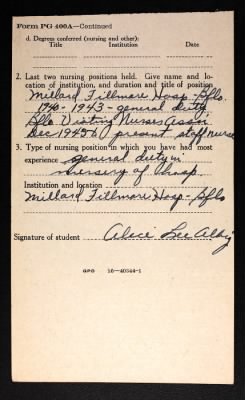 Form PG 400A—Continued
d. Degrees conferred (nursing and other):
Title Institution Date
2. Last two nursing positions held. Give name and lo-
cation of institution, and duration and title of position
Millard Fillmore Hosp - Bflo.
1940 - 1943 - general duty
Bflo Visiting Nurses Assoc
Dec 1945 to present staff nurse
3. Type of nursing position in which you have had most
experience general duty in
nursery of hosp.
Institution and location
Millard Fillmore Hosp - Bflo
Signature of student Alice Lee
GPO 16—40544-1